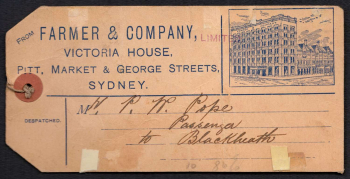 FROM FARMER & COMPANY, LIMITED
VICTORIA HOUSE,
PITT, MARKET & GEORGE STREETS,
SYDNEY.
DESPATCHED.
Mr. P. W. Pope
Passenger
to Blackheath